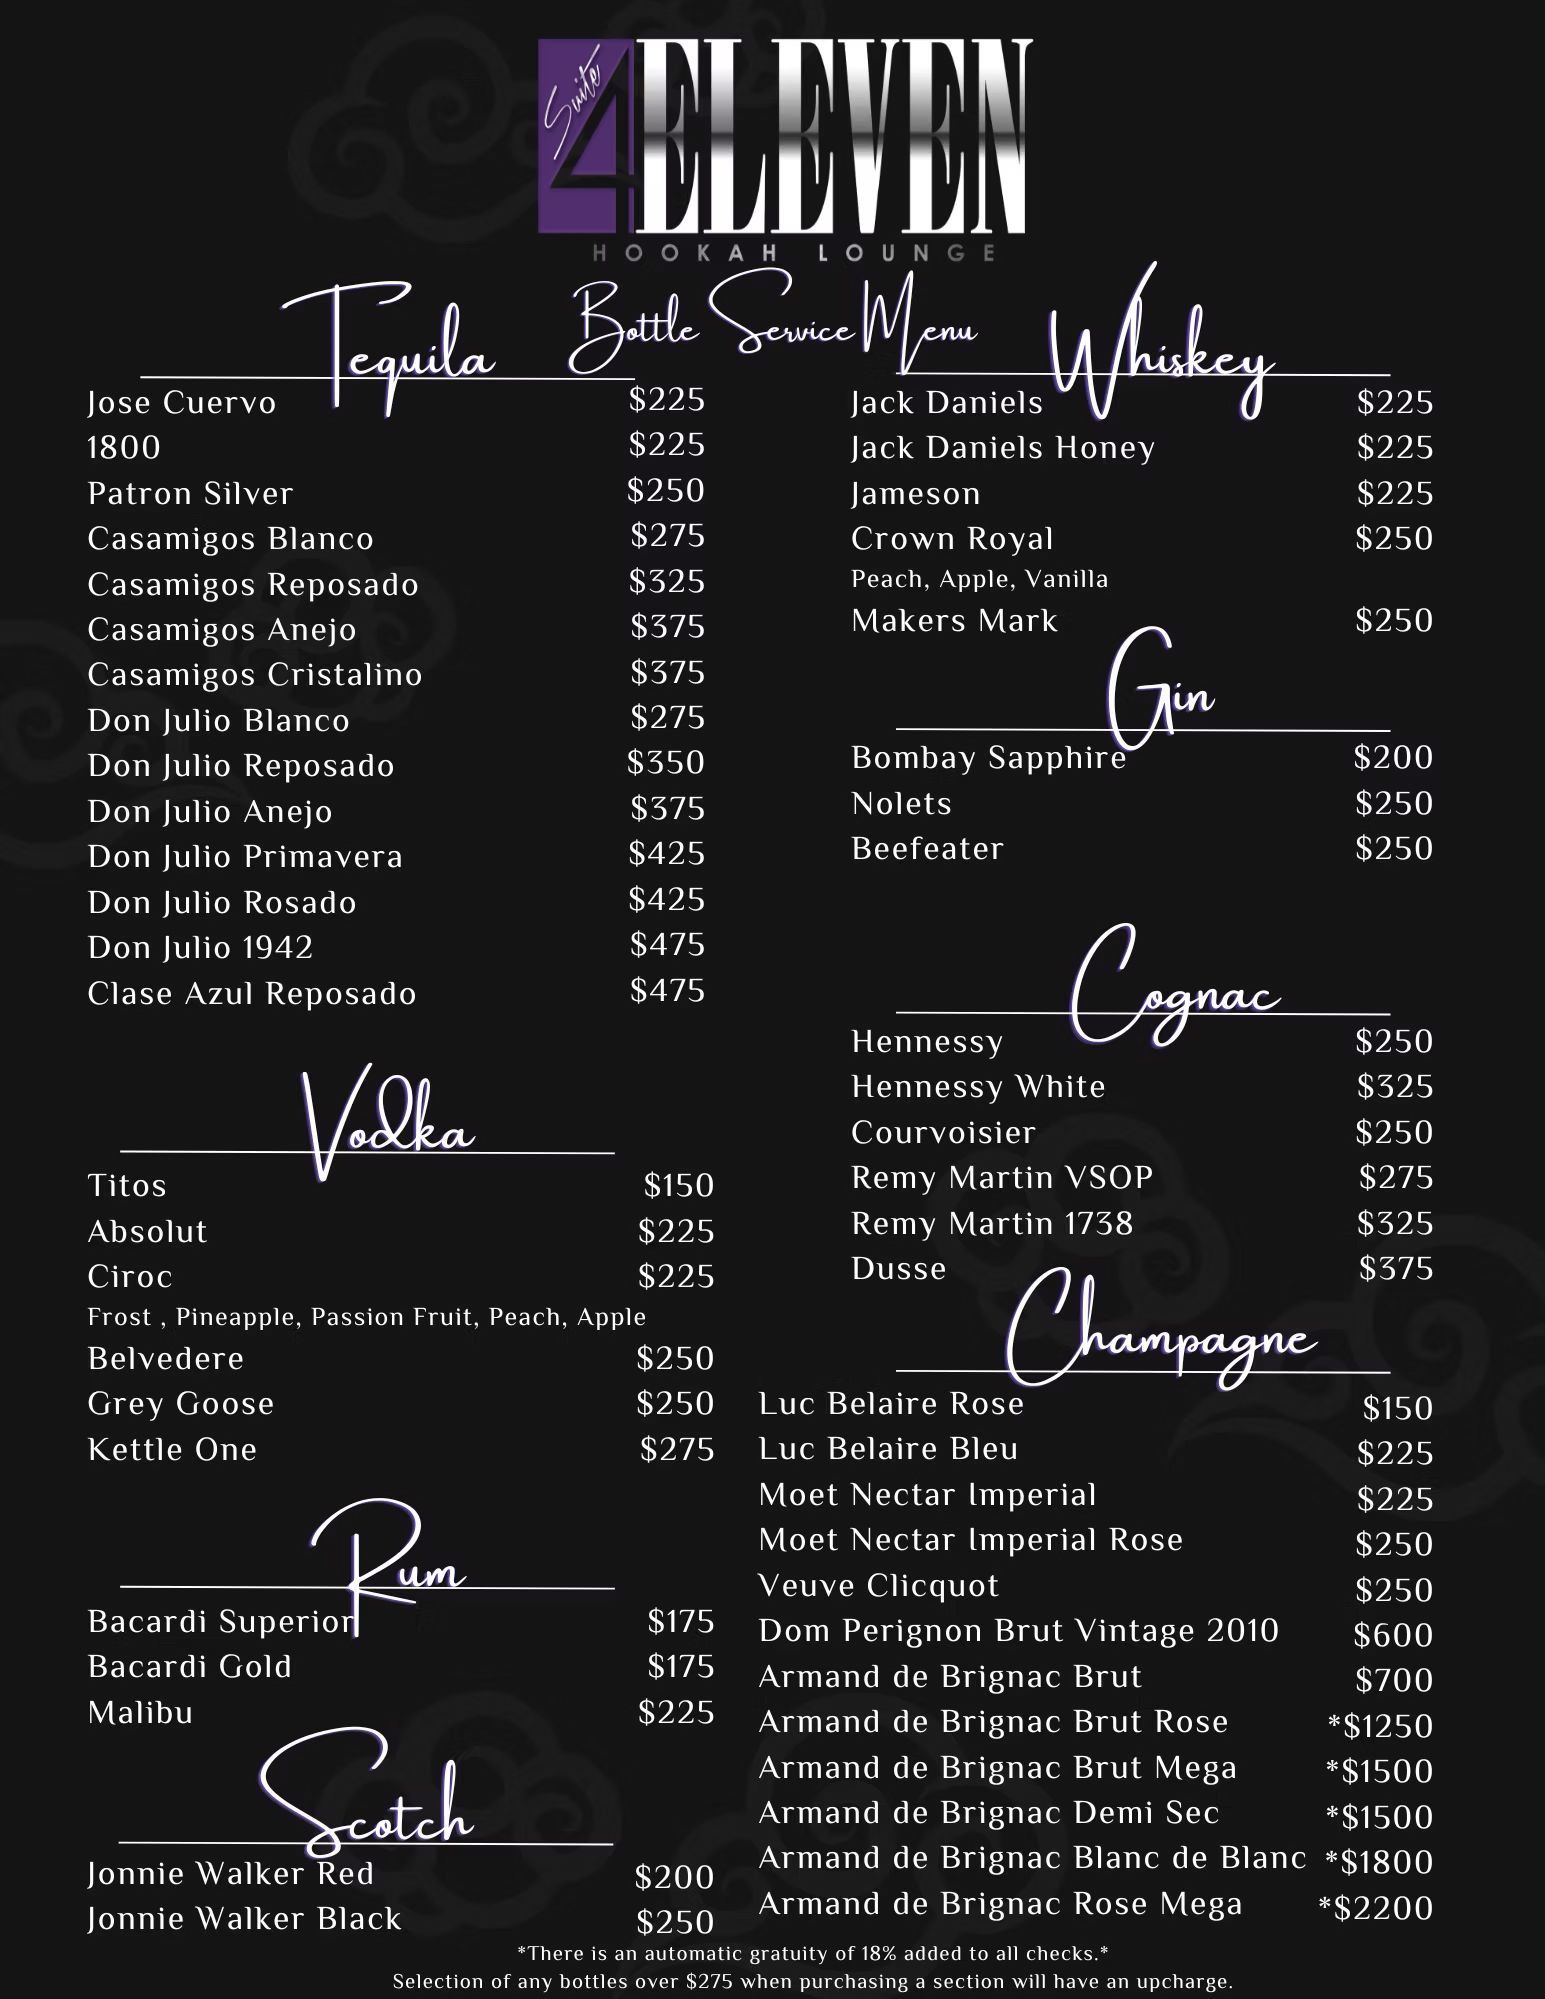 Suite
4ELEVEN
HOOKAH LOUNGE
Bottle Service Menu
Tequila
Jose Cuervo $225
1800 $225
Patron Silver $250
Casamigos Blanco $275
Casamigos Reposado $325
Casamigos Anejo $375
Casamigos Cristalino $375
Don Julio Blanco $275
Don Julio Reposado $350
Don Julio Anejo $375
Don Julio Primavera $425
Don Julio Rosado $425
Don Julio 1942 $475
Clase Azul Reposado $475
Vodka
Titos $150
Absolut $225
Ciroc $225
Frost , Pineapple, Passion Fruit, Peach, Apple
Belvedere $250
Grey Goose $250
Kettle One $275
Rum
Bacardi Superior $175
Bacardi Gold $175
Malibu $225
Scotch
Jonnie Walker Red $200
Jonnie Walker Black $250
Whiskey
Jack Daniels $225
Jack Daniels Honey $225
Jameson $225
Crown Royal $250
Peach, Apple, Vanilla
Makers Mark $250
Gin
Bombay Sapphire $200
Nolets $250
Beefeater $250
Cognac
Hennessy $250
Hennessy White $325
Courvoisier $250
Remy Martin VSOP $275
Remy Martin 1738 $325
Dusse $375
Champagne
Luc Belaire Rose $150
Luc Belaire Bleu $225
Moet Nectar Imperial $225
Moet Nectar Imperial Rose $250
Veuve Clicquot $250
Dom Perignon Brut Vintage 2010 $600
Armand de Brignac Brut $700
Armand de Brignac Brut Rose *$1250
Armand de Brignac Brut Mega *$1500
Armand de Brignac Demi Sec *$1500
Armand de Brignac Blanc de Blanc *$1800
Armand de Brignac Rose Mega *$2200
*There is an automatic gratuity of 18% added to all checks.*
Selection of any bottles over $275 when purchasing a section will have an upcharge.